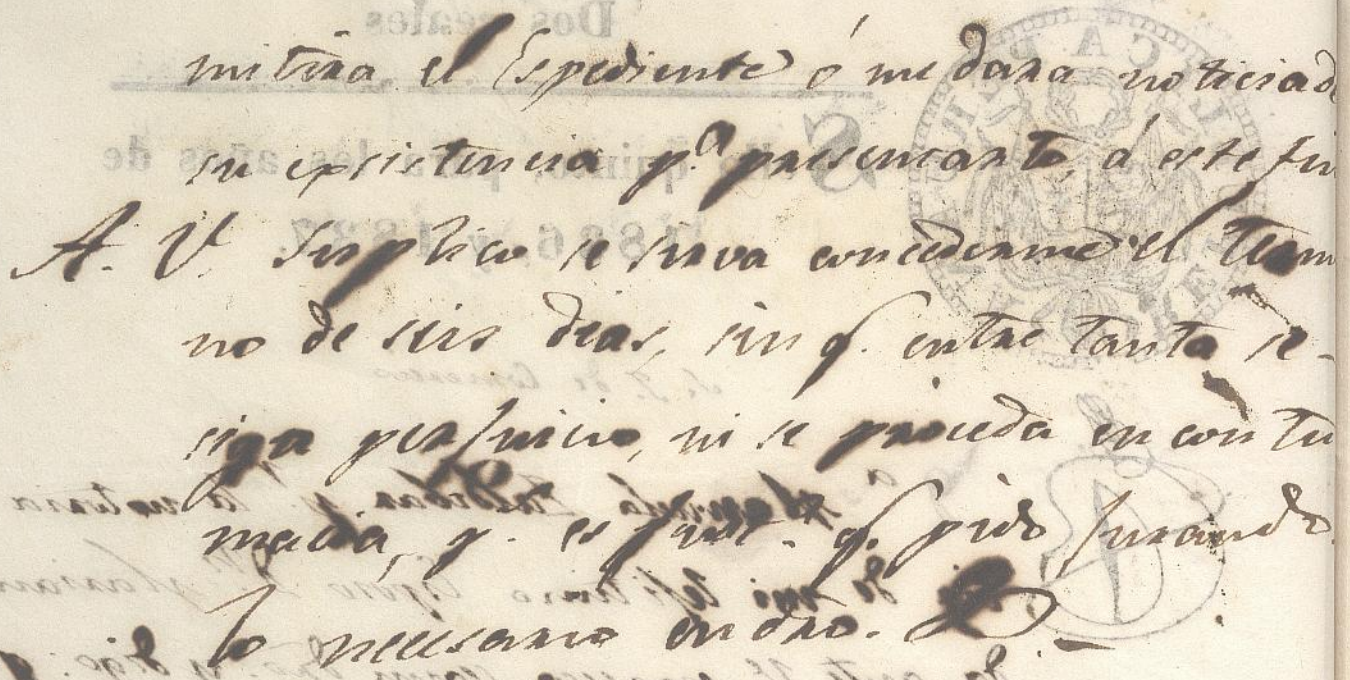 mitira el Espediente ó me dara noticia de
su existencia pª presentarlo, á este fin
A. V. Suplico se sirva concederme el termi
no de seis dias, sin q. entre tanto se
siga perjuicio, ni se proceda en contu
macia, p. es just. q. pido jurando
lo necesario en dro.